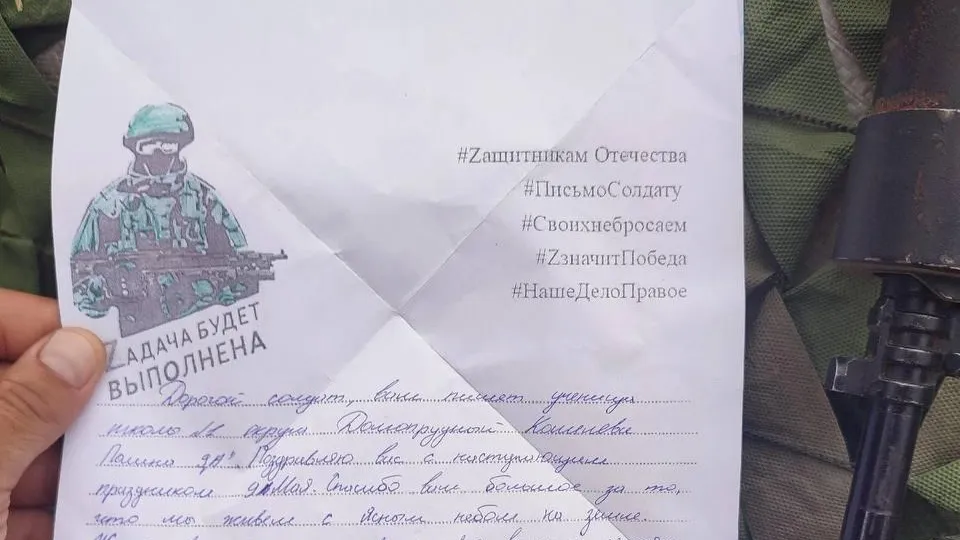 #Zащитникам Отечества
#ПисьмоСолдату
#Своихнебросаем
#ZзначитПобеда
#НашеДелоПравое
ZАДАЧА БУДЕТ
ВЫПОЛНЕНА
Дорогой солдат, вам пишет ученица
школы округа Долгопрудный
Полина Поздравляю вас с наступающим
праздником Спасибо вам большое за то,
что мы живем с ясным небом на земле.